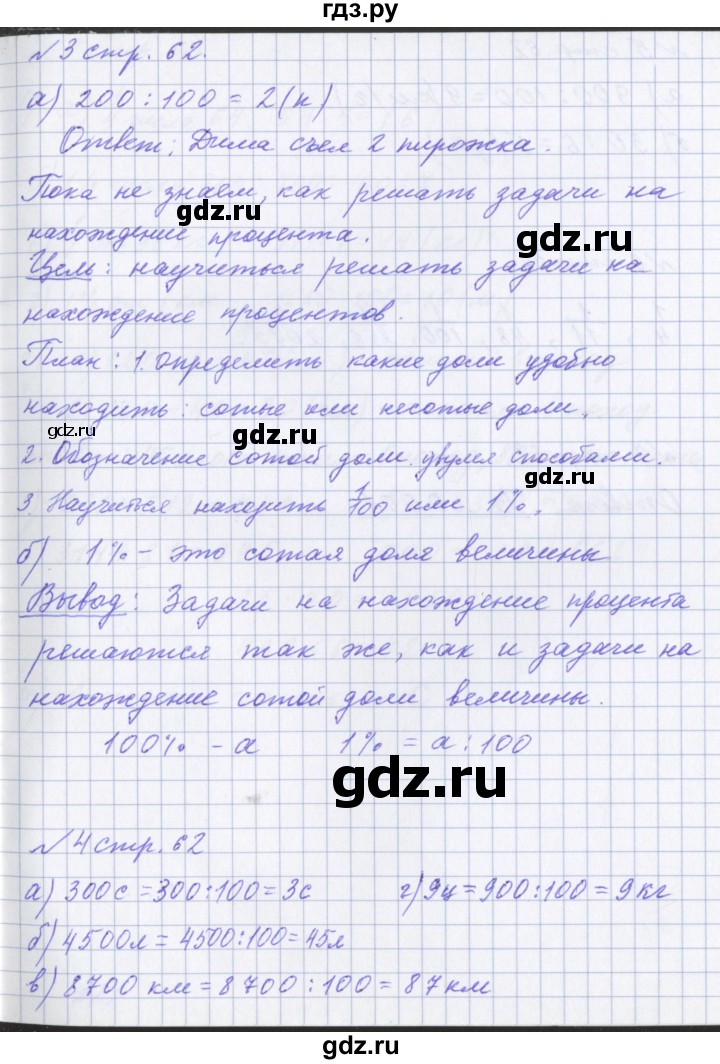 гдз.ру
№3 стр. 62.
а) 200 : 100 = 2 (п)
Ответ: Дима съел 2 пирожка.
Пока не знаем, как решать задачи на
gdz.ru
нахождение процента.
gdz.ru
Цель: научиться решать задачи на
нахождение процентов.
План: 1. Определить какие доли удобно
находить: сотые или несотые доли.
gdz.ru
gdz.ru
2. Обозначение сотой доли двумя способами.
3. Научиться находить 1/100 или 1%.
gdz.ru
б) 1% – это сотая доля величины
Вывод: Задачи на нахождение процента
решаются так же, как и задачи на
gdz.ru
нахождение сотой доли величины.
100% – а 1% = а : 100
gdz.ru
№4 стр. 62
gdz.ru
а) 300с = 300:100 = 3с г) 9ц = 900:100 = 9кг
б) 4500л = 4500:100 = 45л
в) 8700 км = 8700 : 100 = 87км
gdz.ru
gdz.ru